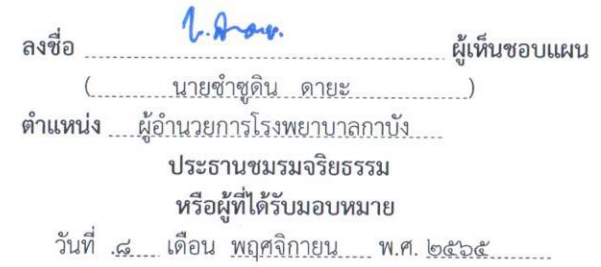 ลงชื่อ ผู้เห็นชอบแผน
( นายซำซูดิน ดายะ )
ตำแหน่ง ผู้อำนวยการโรงพยาบาลกาบัง
ประธานชมรมจริยธรรม
หรือผู้ที่ได้รับมอบหมาย
วันที่ .๘ เดือน พฤศจิกายน พ.ศ. ๒๕๖๕